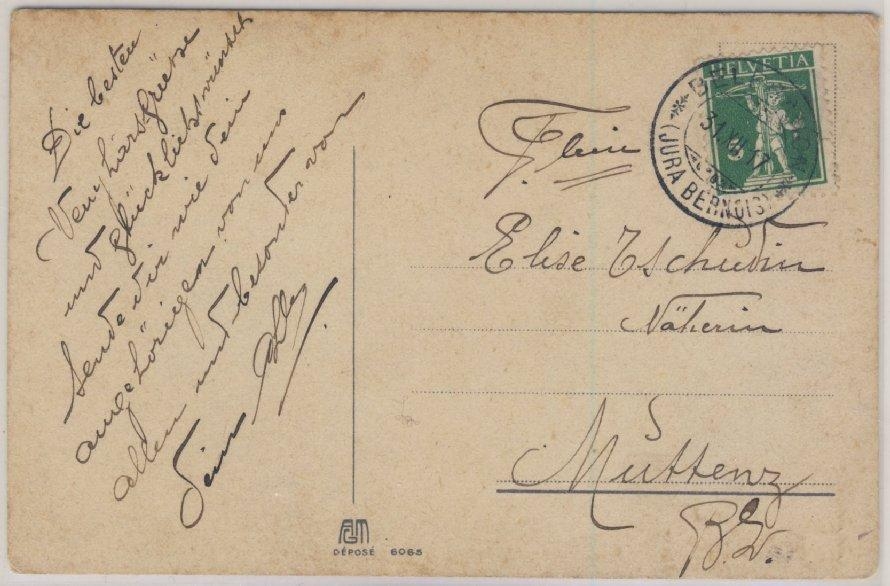 Die besten
Neujahrsgrüsse
und Glückliebstwünsche
sende dir wie dein
angehörigen von uns
allen und besonder von
dein
HELVETIA
31.XII.17
(JURA BERNOIS)
Frlein
Elise Tschudin
Näherin
Muttenz
B.L.
DÉPOSÉ 6065